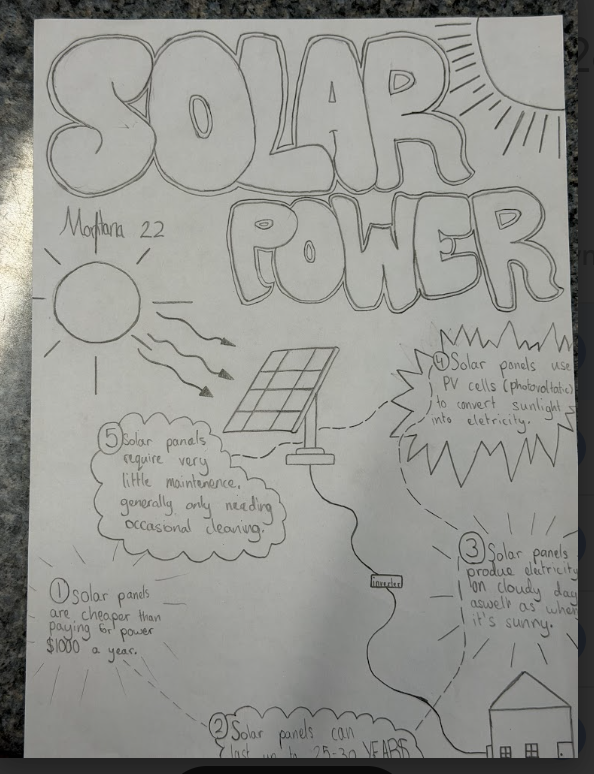 SOLAR
POWER
22
④ Solar panels use
PV cells (photovoltatic)
to convert sunlight
into eletricity.
⑤ Solar panals
require very
little maintenence,
generally only needing
occasional cleaning.
inverter
③ Solar panels
produe electricity
on cloudy day
aswell as when
it's sunny.
① Solar panels
are cheaper than
paying for power
$1000 a year.
② Solar panels can
last up to 25-30 YEARS